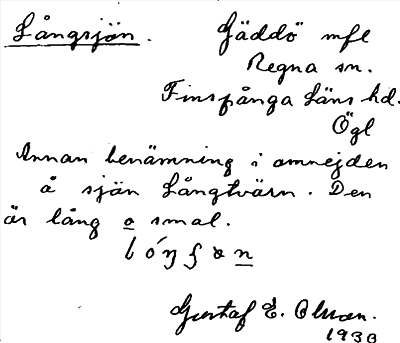 Långsjön. Gäddö mfl
Regna sn.
Finspånga läns hd.
Ögl
Annan benämning i omnejden
å sjön Långtvärn. Den
är lång o smal.
Gustaf E. Olsson.
1930